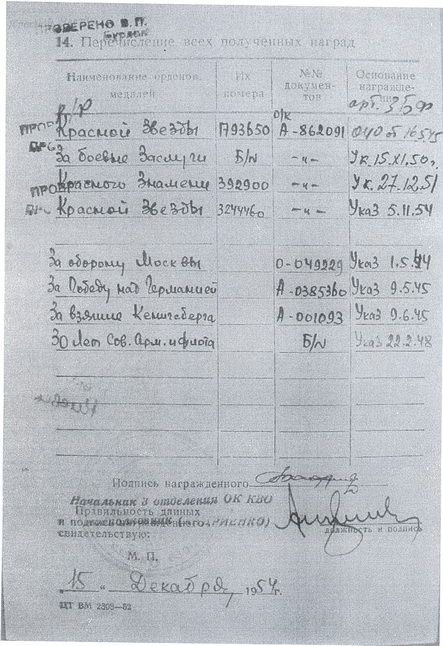 ПРОВЕРЕНО В.П.
14. Перечисление всех полученных наград
Наименование орденов, медалей Их номера №№ документов Основание награждения
о/к
Красной Звезды 1793650 А-862091
За боевые Заслуги Б/N -"- Ук. 15.XI.50г.
Красного Знамени 392900 -"- Ук. 27.12.51
Красной Звезды 3244460 -"- Указ 5.11.54
За оборону Москвы 0-049229 Указ 1.5.44
За Победу над Германией А-0385360 Указ 9.5.45
За взятие Кенигсберга А-001093 Указ 9.6.45
30 Лет Сов. Арм. и флота Б/N Указ 22.2.48
Подпись награжденного
Начальник 3 отделения ОК КВО
Правильность данных
и подпись
свидетельствую:
должность и подпись
М. П.
"15" Декабря 1954г.
ЦТ ВМ 2303—52